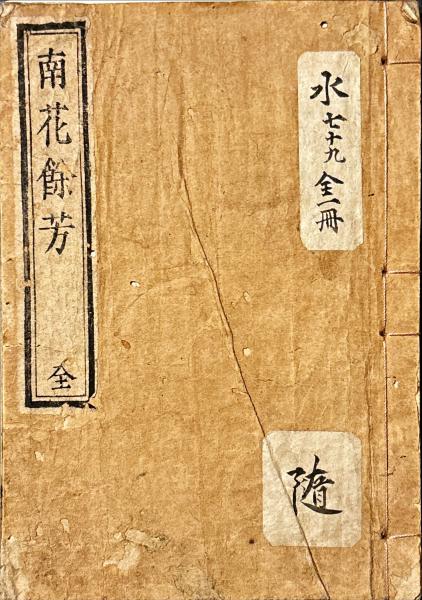 水七十九全一冊
隨
南花餘芳
全